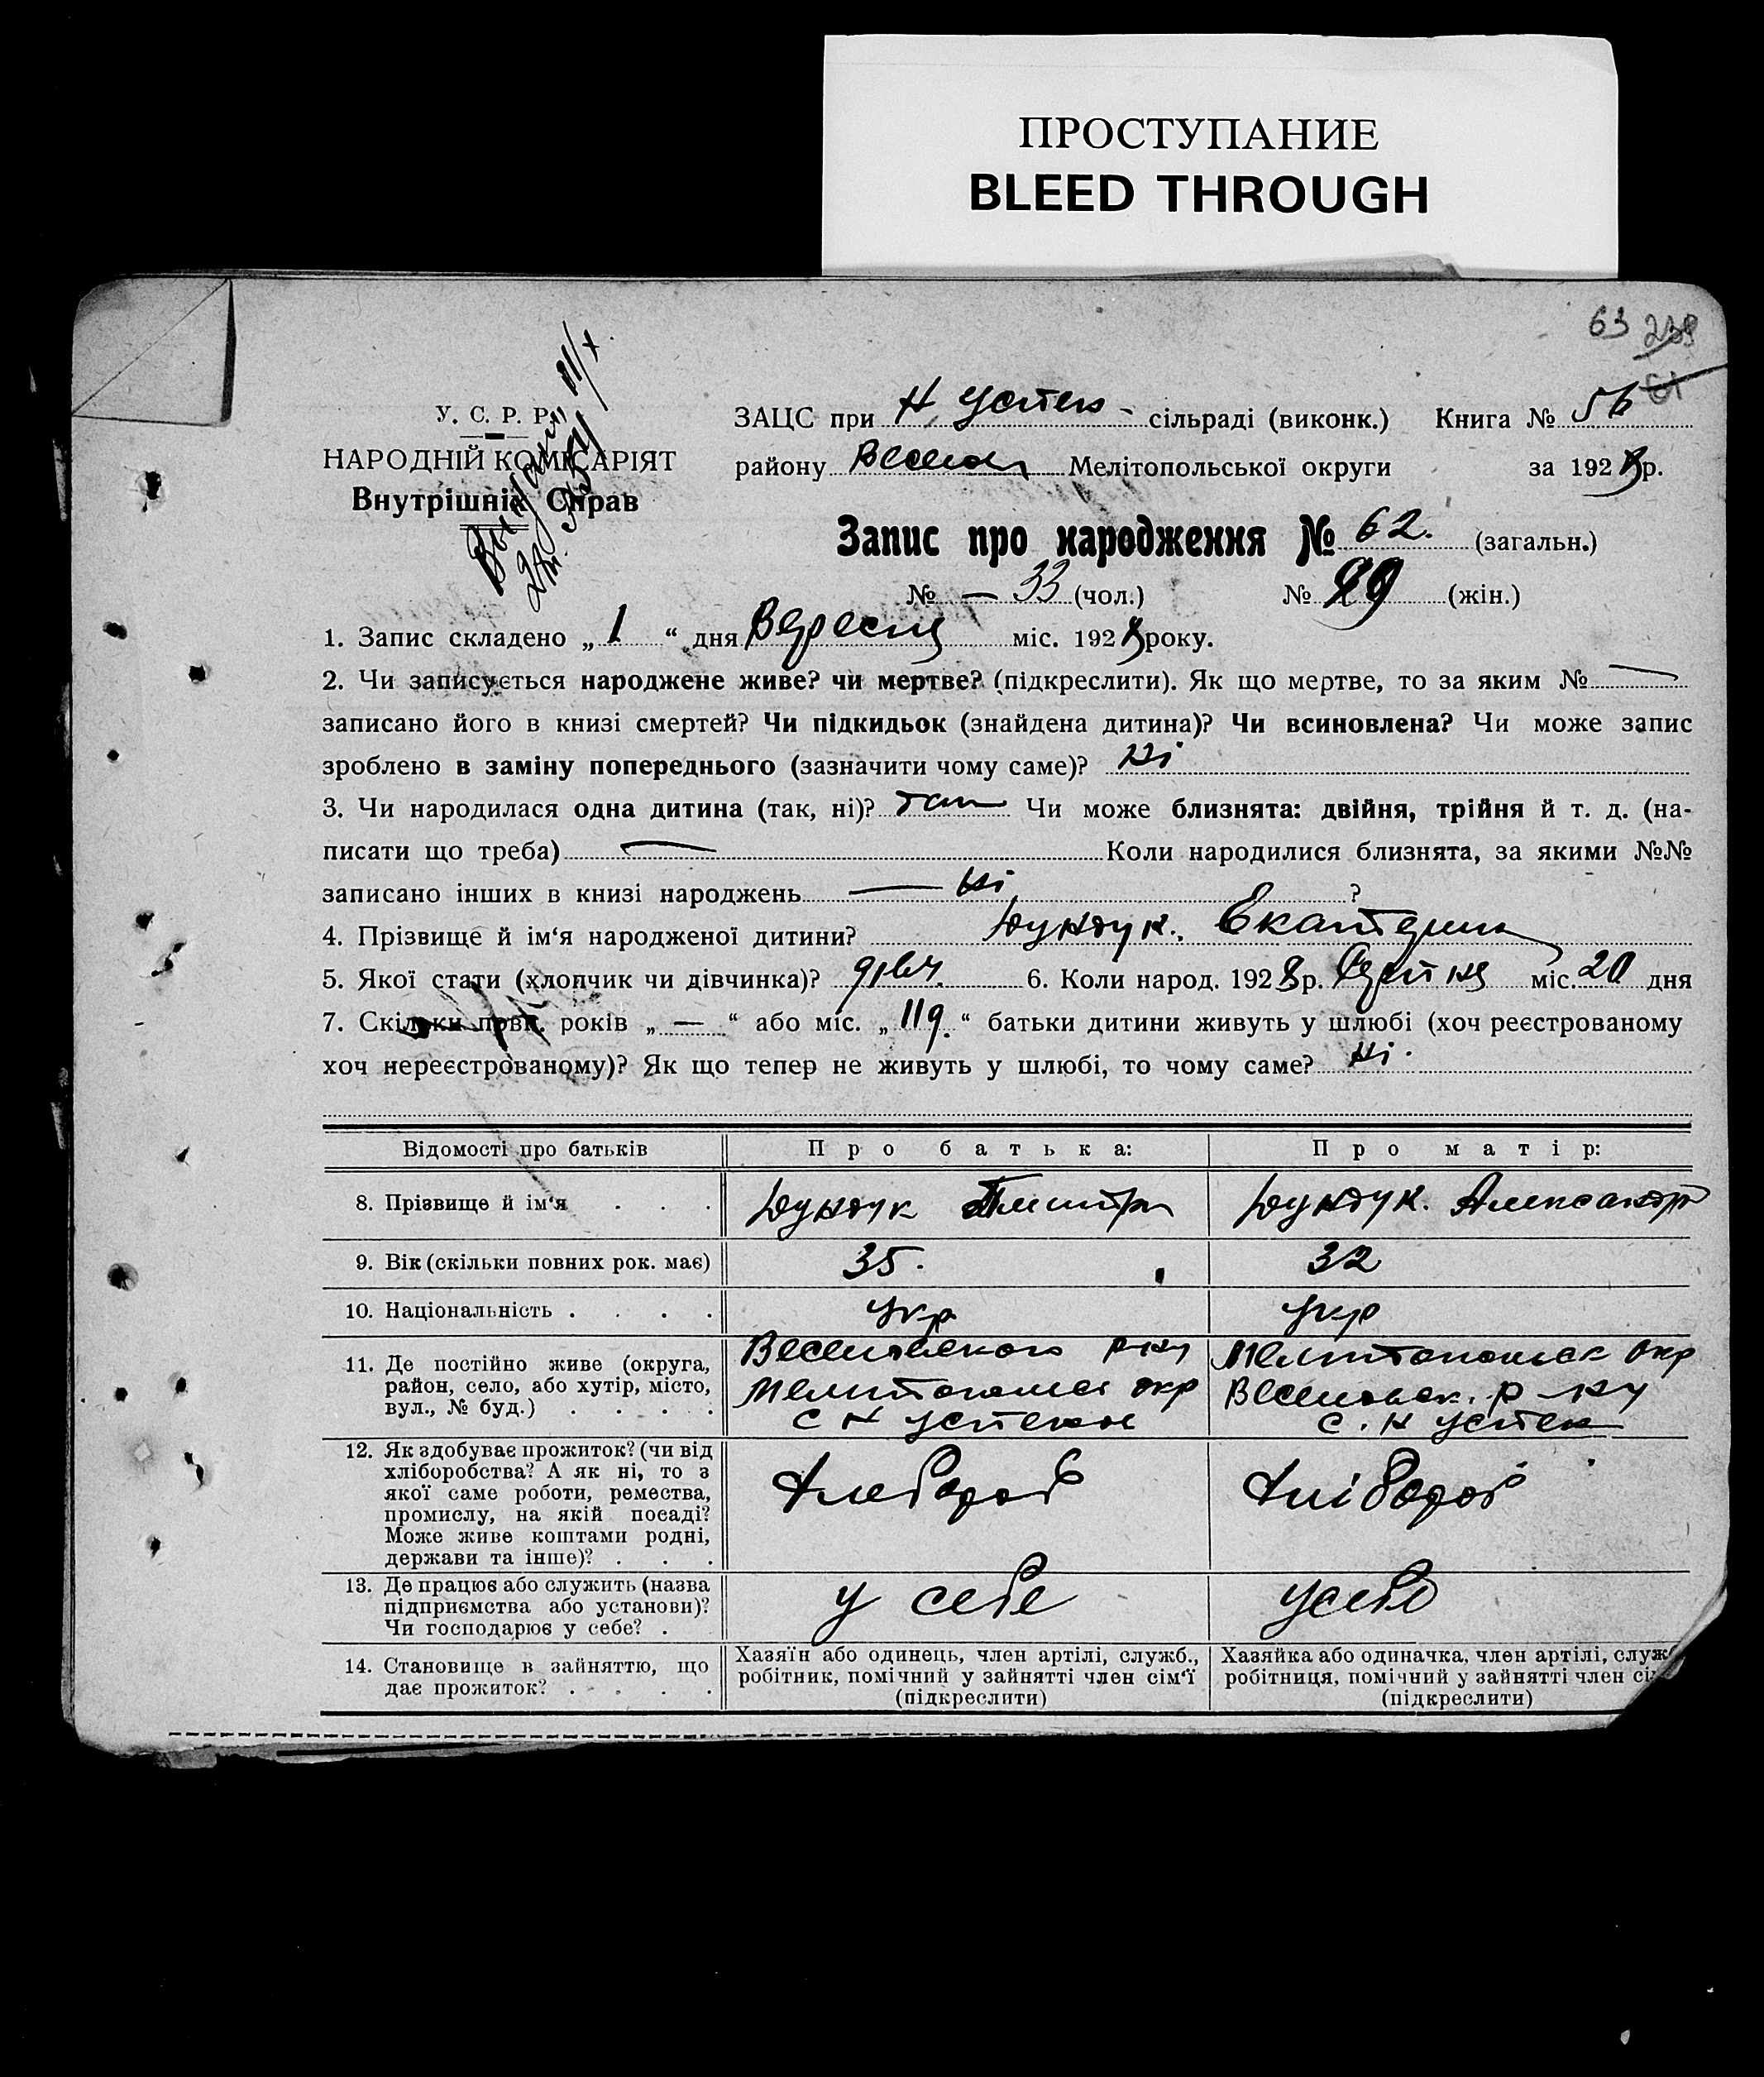 ПРОСТУПАНИЕ
BLEED THROUGH
63 239
61
У. С. Р. Р.
НАРОДНІЙ КОМІСАРІЯТ
Внутрішніх Справ
ЗАЦС при Н Успен- сільраді (виконк.) Книга № 5б
району Весел Мелітопольської округи за 1928р.
Запис про народження № 62. (загальн.)
№ — 33 (чол.) № 29 (жін.)
1. Запис складено „ 1 “ дня Вересня міс. 1928 року.
2. Чи записується народжене живе? чи мертве? (підкреслити). Як що мертве, то за яким № —
записано його в книзі смертей? Чи підкидьок (знайдена дитина)? Чи всиновлена? Чи може запис
зроблено в заміну попереднього (зазначити чому саме)? Ні
3. Чи народилася одна дитина (так, ні)? так Чи може близнята: двійня, трійня й т. д. (на-
писати що треба) — Коли народилися близнята, за якими №№
записано інших в книзі народжень — Ні ?
4. Прізвище й ім‘я народженої дитини? Дундук. Екатерина
5. Якої стати (хлопчик чи дівчинка)? дівч. 6. Коли народ. 1928р. Серпня міс. 20 дня
7. Скільки повн. років „ — “ або міс. „ 119 “ батьки дитини живуть у шлюбі (хоч реєстрованому
хоч нереєстрованому)? Як що тепер не живуть у шлюбі, то чому саме? Ні.
Відомості про батьків Про батька: Про матір:
8. Прізвище й ім‘я . . . Дундук Дмитри Дундук. Александр
9. Вік (скільки повних рок. має) 35. 32
10. Національність . . . . укр укр
11. Де постійно живе (округа, район, село, або хутір, місто, вул., № буд.) . . . .
Веселовского р-ну
Мелитопольск окр
с Н Успенки
Мелитопольск окр
Веселовск. р-ну
с. Н Успен
12. Як здобуває прожиток? (чи від хліборобства? А як ні, то з якої саме роботи, ремества, промислу, на якій посаді? Може живе коштами родні, держави та інше)? . . .
Хлебороб Хлібороб
13. Де працює або служить (назва підприємства або установи)? Чи господарює у себе? .
у себе у себе
14. Становище в зайняттю, що дає прожиток? . . . .
Хазяїн або одинець, член артілі, служб.,
робітник, помічний у зайнятті член сім‘ї
(підкреслити)
Хазяйка або одиначка, член артілі, служ
робітниця, помічний у зайнятті член сі
(підкреслити)